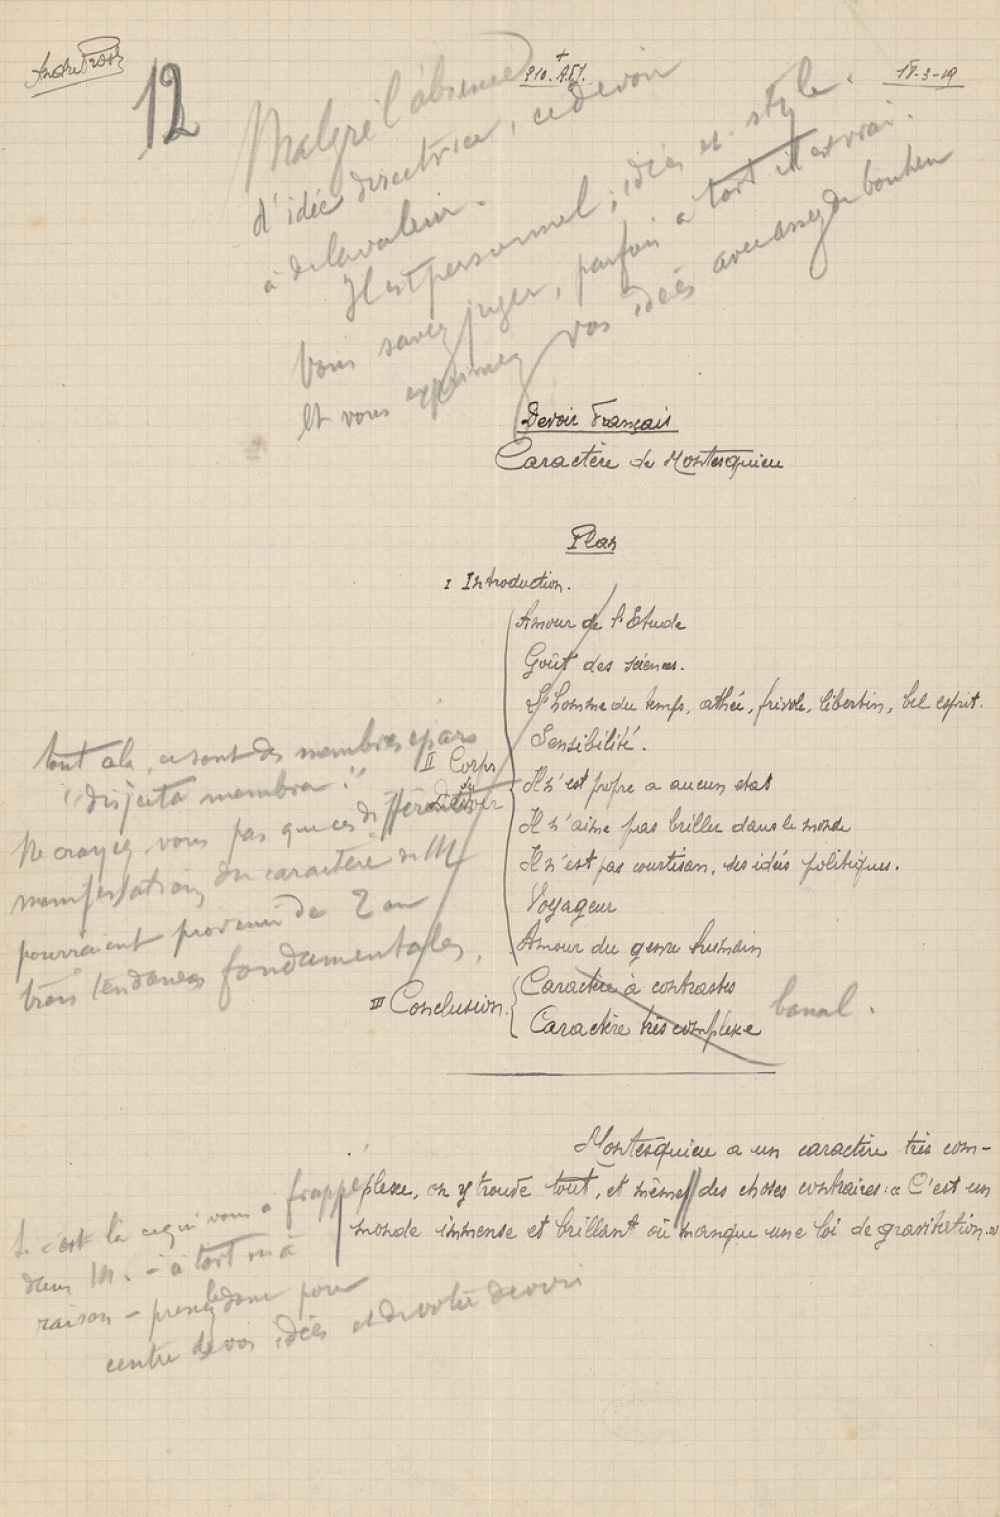 André Prost
12
18-3-19
Malgré l'absence
d'idée directrice, ce devoir
a de la valeur.
Il est personnel ; idées et style.
Vous savez juger, parfois à tort il est vrai.
Et vous exprimez vos idées avec assez de bonheur
Devoir Français
Caractère de Montesquieu
Plan
I Introduction.
Amour de l'Etude
Goût des sciences.
L'homme du temps, athée, frivole, libertin, bel esprit.
Sensibilité.
II Corps
du
Devoir
Il n'est propre a aucun etat
Il n'aime pas briller dans le monde
Il n'est pas courtisan, ses idées politiques.
Voyageur
Amour du genre humain
tout cela, ce sont des membres épars
"disjecta membra."
Ne croyez vous pas que ces différentes
manifestations du caractère de M
pourraient provenir de 2 ou
trois tendances fondamentales,
III Conclusion.
Caractère à contrastes
Caractère très complexe
banal.
Montesquieu a un caractère très com-
plexe, on y trouve tout, et même des choses contraires : « C'est un
monde immense et brillant où manque une loi de gravitation. »
Si c'est là ce qui vous a frappé
dans M. - à tort ou à
raison - prenez le donc pour
centre de vos idées et de votre devoir